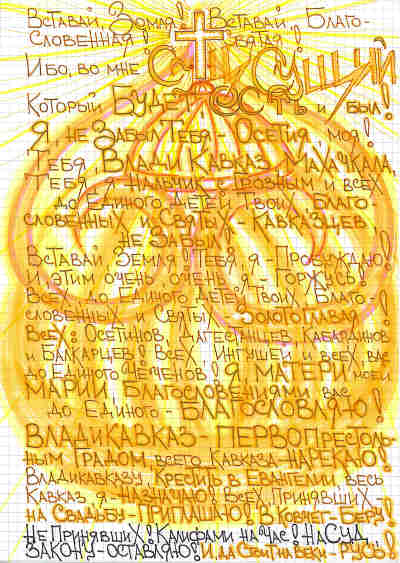 Вставай, Земля! Вставай, Благо-
словенная! Святая!
Ибо, во мне Сам Сущий
Который Будет Есть и был!
Я, не Забыл Тебя - Осетия моя!
Тебя, Владикавказ, Махачкала,
Тебя я Нальчик с Грозным и всех
до Единого Детей Твоих, Благо-
словенных и Святых - Кавказцев
не Забыл!
Вставай Земля! Тебя, я - Пробуждаю!
И этим очень, очень я - Горжусь!
Всех до единого Детей Твоих, Благо-
словенных Святых Золотоглавая!
Всех: Осетинов, Дагестанцев, Кабардинов
и Балкарцев! Всех Ингушей и всех, вас
до Единого Чеченов! Я Матери моей
Марии, Благословениями, вас
до Единого - Благословляю!
Владикавказ - Первопрестоль-
ным Градом, всего Кавказа - Нарекаю!
Владикавказу Крестить в Евангелии, весь
Кавказ я - Назначаю! Всех, Принявших
на Свадьбу - Приглашаю! В Ковчег - Беру!
Не Принявших! Калифами на Час! На Суд,
Закону - Оставляю! И, да Стоит на Веки - Русь!